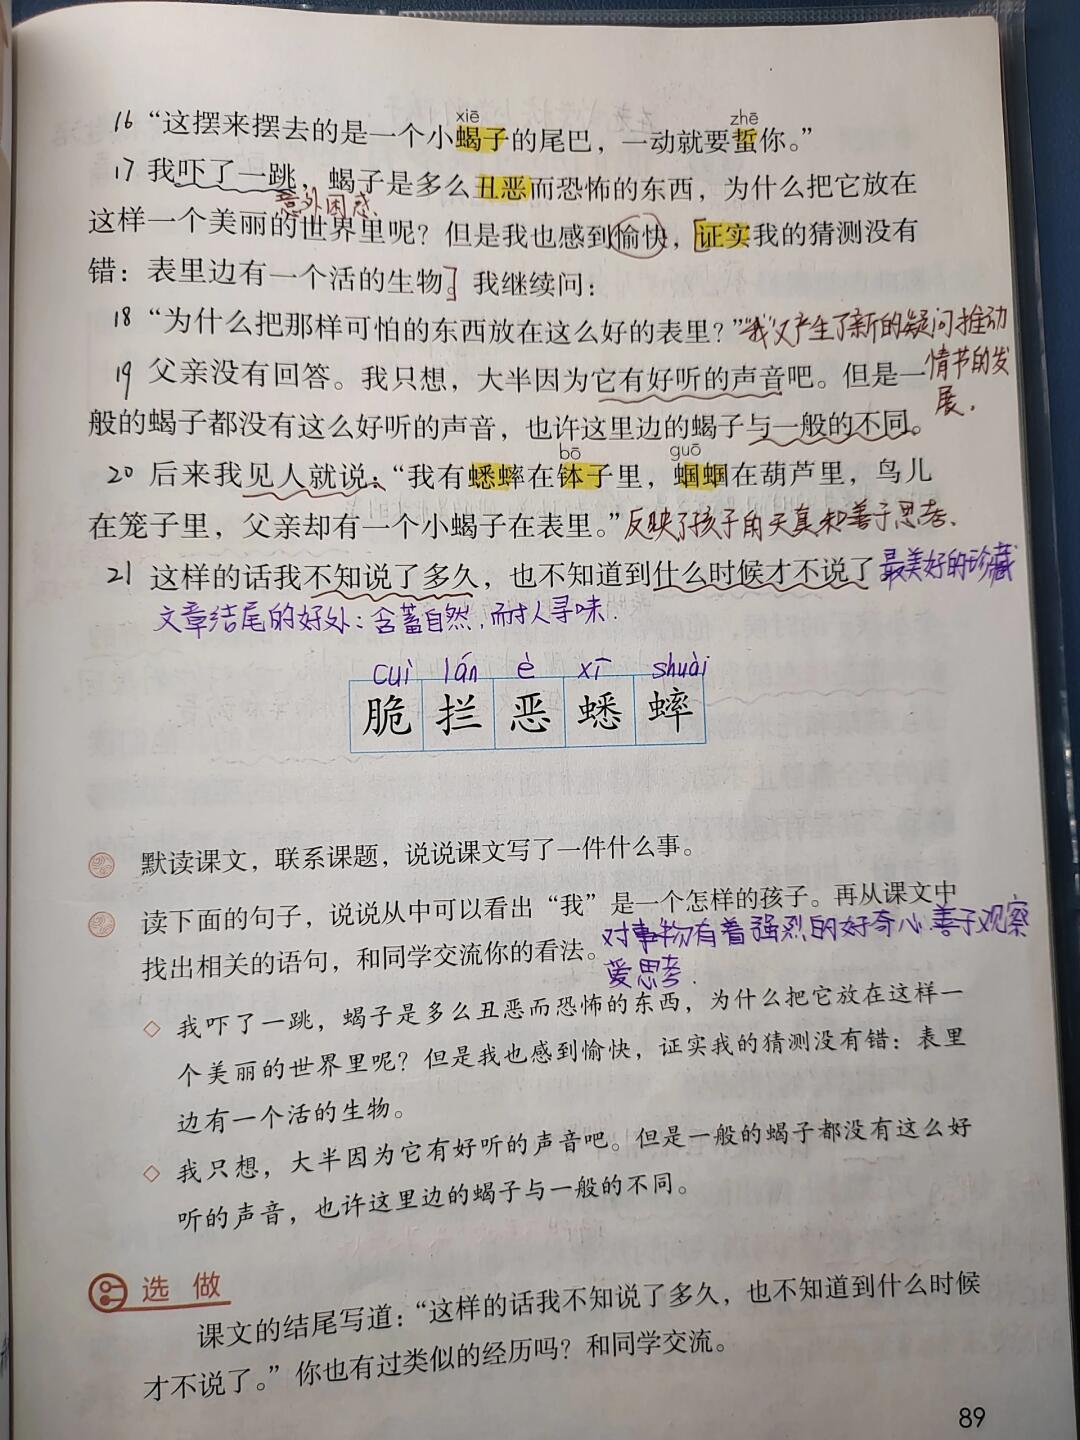 xiē zhē
16 “这摆来摆去的是一个小蝎子的尾巴，一动就要蜇你。”
17 我吓了一跳，蝎子是多么丑恶而恐怖的东西，为什么把它放在
意外困惑
这样一个美丽的世界里呢？但是我也感到愉快，证实我的猜测没有
错：表里边有一个活的生物。我继续问：
18 “为什么把那样可怕的东西放在这么好的表里？” “我”又产生了新的疑问推动
情节的发
展.
19 父亲没有回答。我只想，大半因为它有好听的声音吧。但是一
般的蝎子都没有这么好听的声音，也许这里边的蝎子与一般的不同。
bō guō
20 后来我见人就说：“我有蟋蟀在钵子里，蝈蝈在葫芦里，鸟儿
在笼子里，父亲却有一个小蝎子在表里。” 反映了孩子的天真和善于思考.
21 这样的话我不知说了多久，也不知道到什么时候才不说了 最美好的珍藏
文章结尾的好处：含蓄自然,耐人寻味.
cuì lán è xī shuài
脆 拦 恶 蟋 蟀
默读课文，联系课题，说说课文写了一件什么事。
读下面的句子，说说从中可以看出“我”是一个怎样的孩子。再从课文中
找出相关的语句，和同学交流你的看法。
对事物有着强烈的好奇心.善于观察
爱思考.
我吓了一跳，蝎子是多么丑恶而恐怖的东西，为什么把它放在这样一
个美丽的世界里呢？但是我也感到愉快，证实我的猜测没有错：表里
边有一个活的生物。
我只想，大半因为它有好听的声音吧。但是一般的蝎子都没有这么好
听的声音，也许这里边的蝎子与一般的不同。
选做
课文的结尾写道：“这样的话我不知说了多久，也不知道到什么时候
才不说了。”你也有过类似的经历吗？和同学交流。
89